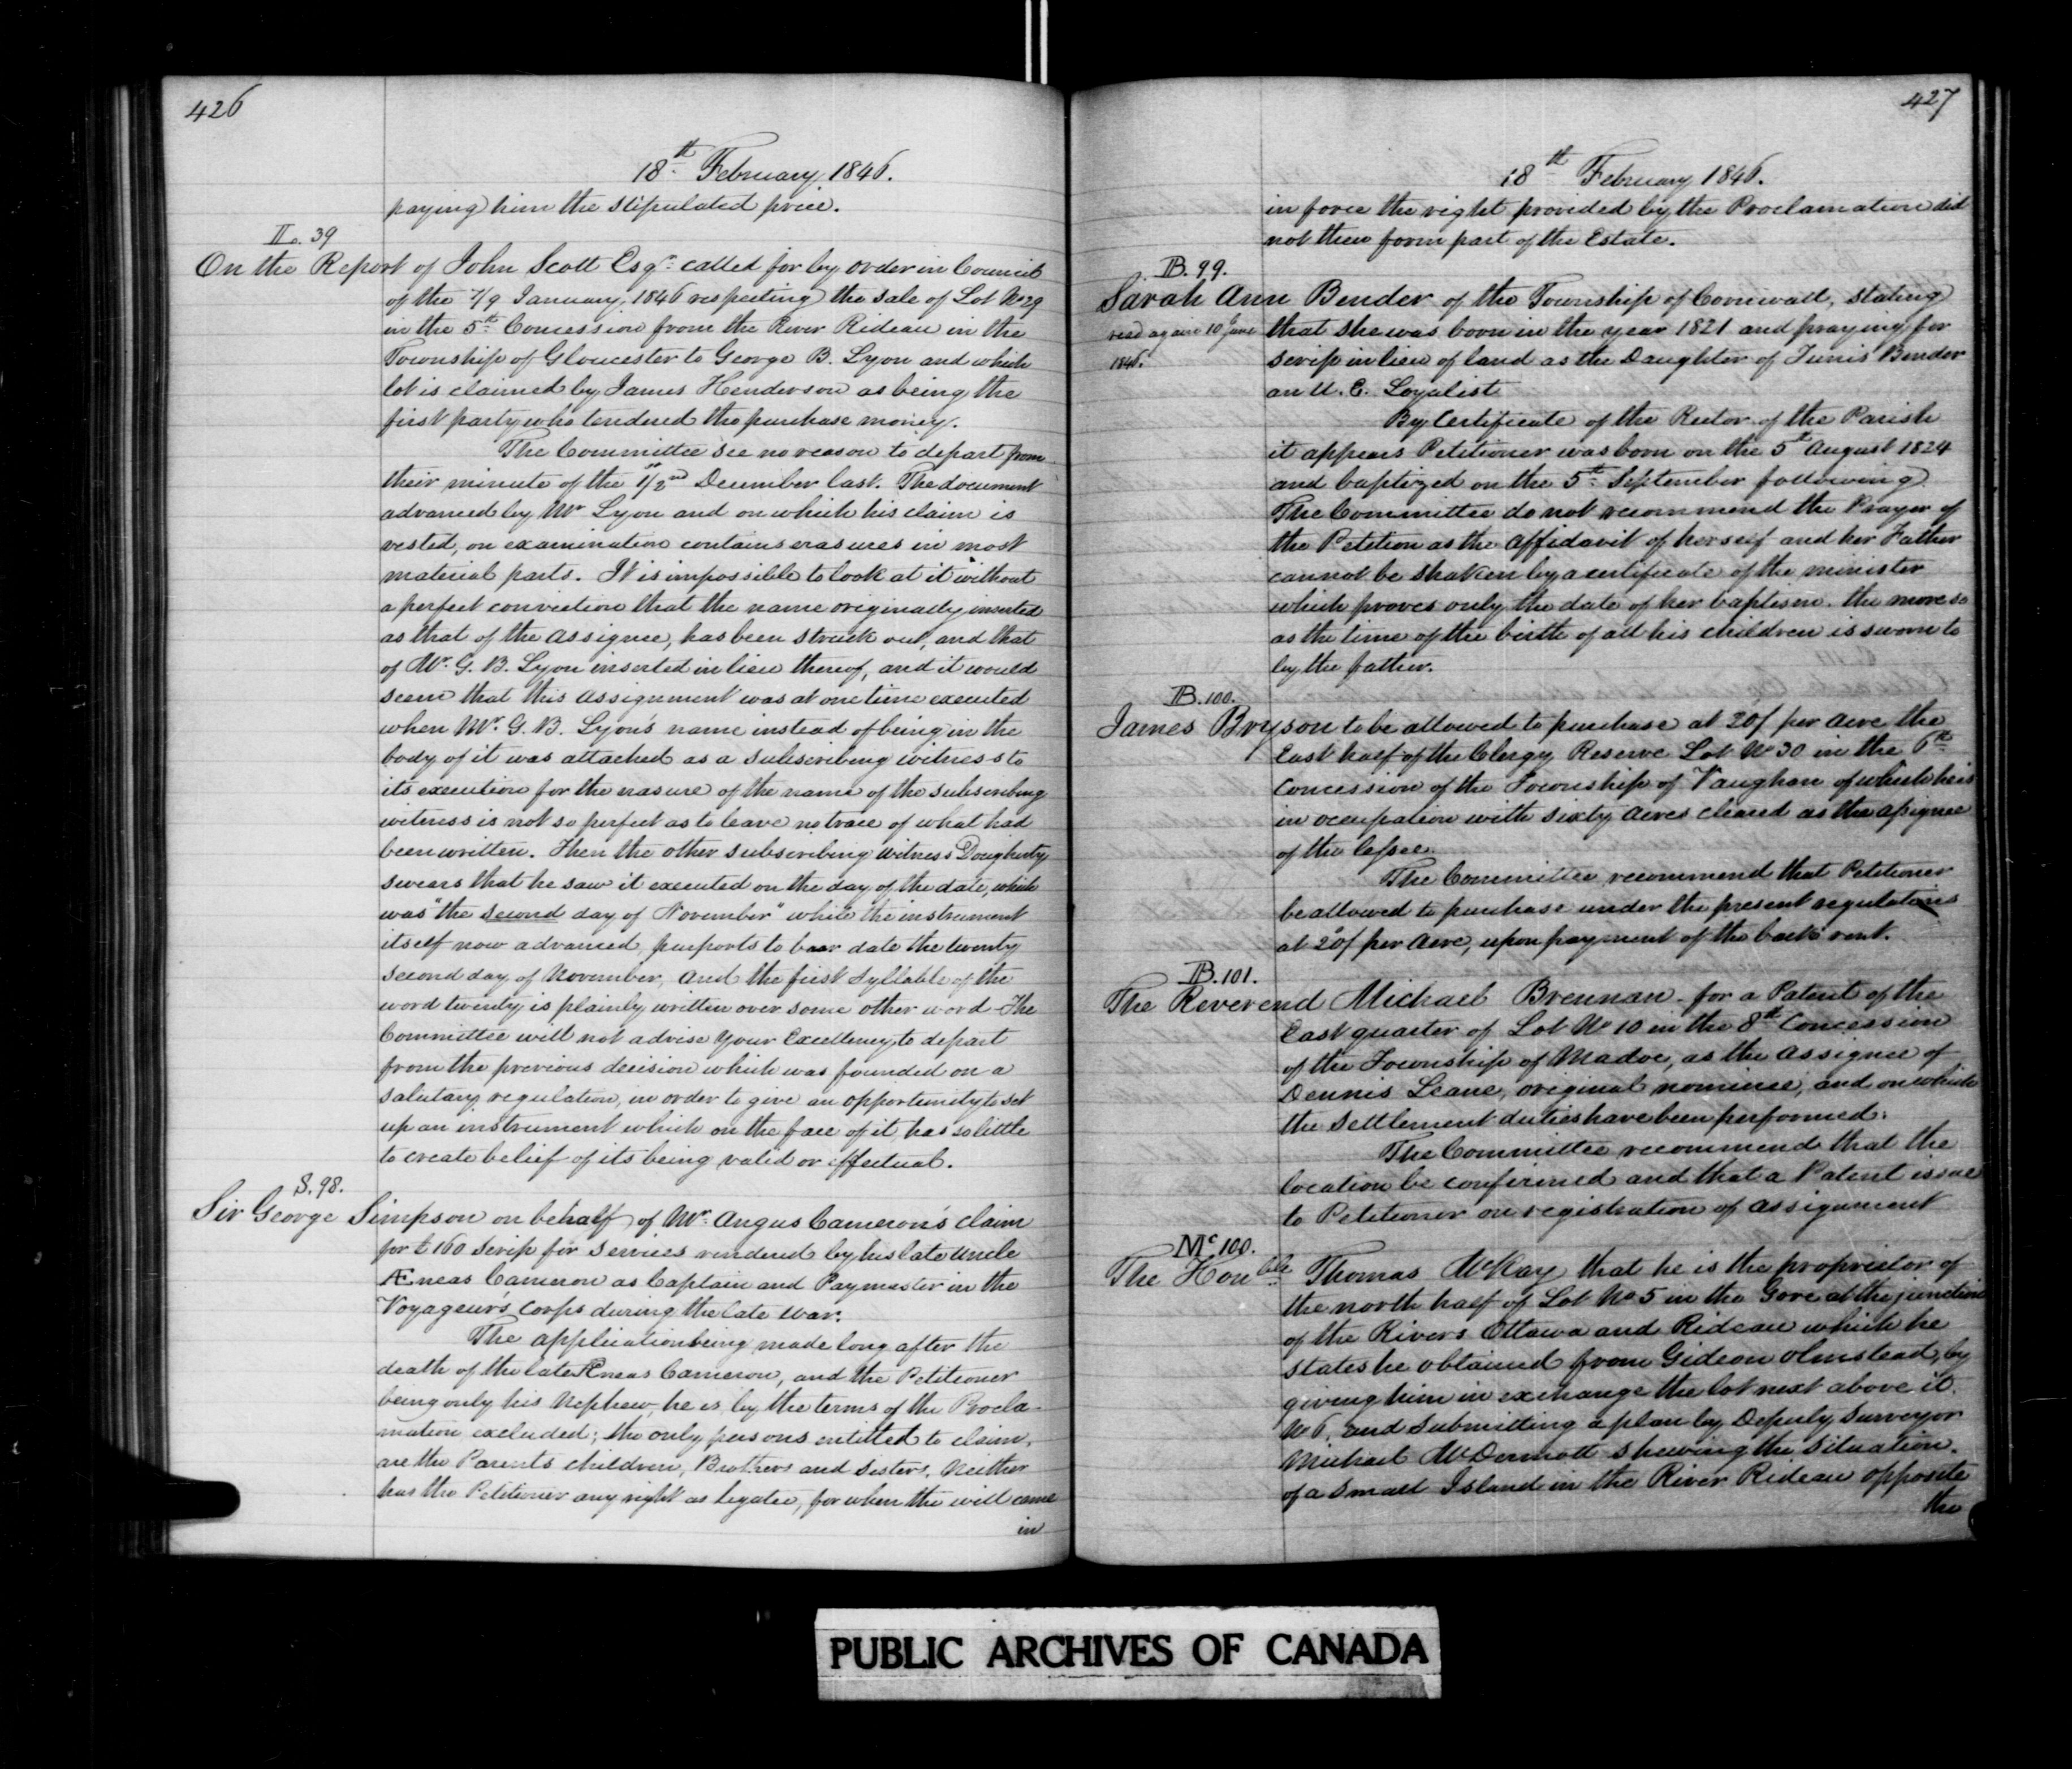 426
18th February 1846.
paying him the stipulated price.
L. 39
On the Report of John Scott Esqr. called for by order in Council
of the 7/9 January 1846 respecting the sale of Lot No 29
in the 5th Concession from the River Rideau in the
Township of Gloucester to George B. Lyon and which
lot is claimed by James Henderson as being the
first party who tendered the purchase money.
The Committee see no reason to depart from
their minute of the 1st/2nd December last. The document
advanced by Mr Lyon and on which his claim is
rested, on examination contains erasures in most
material parts. It is impossible to look at it without
a perfect conviction that the name originally inserted
as that of the assignee, has been struck out, and that
of Mr. G. B. Lyon inserted in lieu thereof, and it would
seem that this assignment was at one time executed
when Mr. G. B. Lyon's name instead of being in the
body of it was attached as a subscribing witness to
its execution for the erasure of the name of the subscribing
witness is not so perfect as to leave no trace of what had
been written. Then the other subscribing witness Dougherty
swears that he saw it executed on the day of the date, which
was "the second day of November" while the instrument
itself now advanced purports to bear date the twenty
second day of November, and the first syllable of the
word twenty is plainly written over some other word - The
Committee will not advise Your Excellency to depart
from the previous decision which was founded on a
salutary regulation, in order to give an opportunity to set
up an instrument which on the face of it has so little
to create belief of its being valid or effectual.
S. 98.
Sir George Simpson on behalf of Mr. Angus Cameron's claim
for £160 Scrip for services rendered by his late uncle
Æneas Cameron as Captain and Paymaster in the
Voyageur's Corps during the late War.
The application being made long after the
death of the late Æneas Cameron, and the Petitioner
being only his Nephew, he is by the terms of the Procla-
mation excluded; the only persons entitled to claim,
are the Parents children, Brothers and Sisters, Neither
has the Petitioner any right as legatee, for when the will came
in
427
18th February 1846.
in force the right provided by the Proclamation did
not then form part of the Estate.
B. 99.
Sarah Ann Bender of the Township of Cornwall, stating
read again 10 June
1846.
that she was born in the year 1821 and praying for
scrip in lieu of land as the Daughter of Tunis Bender
an U. E. Loyalist
By Certificate of the Rector of the Parish
it appears Petitioner was born on the 5th August 1824
and baptized on the 5th September following
The Committee do not recommend the Prayer of
the Petition as the affidavit of herself and her Father
cannot be shaken by a certificate of the minister
which proves only the date of her baptism. the more so
as the time of the birth of all his children is sworn to
by the father.
B. 100.
James Bryson to be allowed to purchase at 20/ per Acre the
East half of the Clergy Reserve Lot No 30 in the 6th
Concession of the Township of Vaughan of which he is
in occupation with sixty acres cleared as the assignee
of the lessee.
The Committee recommend that Petitioner
be allowed to purchase under the present regulations
at 20/ per Acre, upon payment of the back rent.
B. 101.
The Reverend Michael Brennan - for a Patent of the
East quarter of Lot No 10 in the 8th Concession
of the Township of Madoc, as the assignee of
Dennis Leane, original nominee, and on which
the settlement duties have been performed.
The Committee recommend that the
location be confirmed and that a Patent issue
to Petitioner on registration of assignment
Mc 100.
The Honble Thomas McKay that he is the proprietor of
the north half of Lot No 5 in the Gore at the junction
of the Rivers Ottawa and Rideau which he
states he obtained from Gideon Olmstead, by
giving him in exchange the lot next above it
No 6, and submitting a plan by Deputy Surveyor
Michael McDermott shewing the situation
of a small Island in the River Rideau opposite
the
PUBLIC ARCHIVES OF CANADA